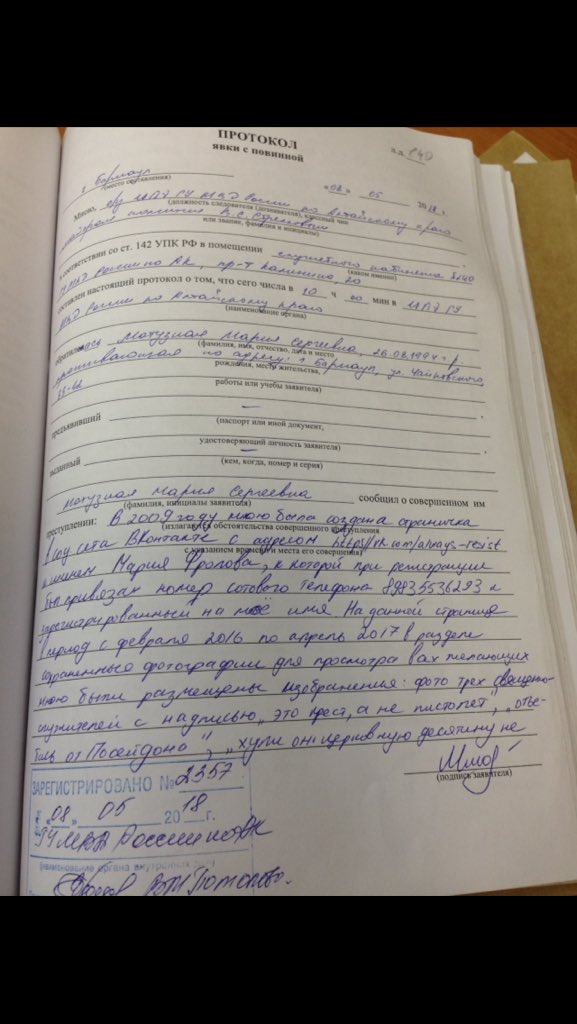 ПРОТОКОЛ
явки с повинной
л.д. 140
г. Барнаул
(место составления)
«08» 05 2018 г.
Мною, ЦПЭ ГУ МВД России по Алтайскому краю
(должность следователя (дознавателя), классный чин
майором полиции
или звание, фамилия и инициалы)
в соответствии со ст. 142 УПК РФ в помещении служебного кабинета №40
(каком именно)
МВД России по АК, пр-т Калинина,
составлен настоящий протокол о том, что сего числа в 20 ч 00 мин в ЦПЭ ГУ
МВД России по Алтайскому краю
(наименование органа)
обратилась Мотузная Мария Сергеевна, 26.08.1994 г.р.
(фамилия, имя, отчество, дата и место
проживающая по адресу: г. Барнаул, ул. Чайковского,
рождения, место жительства,
работы или учебы заявителя)
предъявивший —
(паспорт или иной документ,
удостоверяющий личность заявителя)
выданный —
(кем, когда, номер и серия)
Мотузная Мария Сергеевна сообщил о совершенном им
(фамилия, инициалы заявителя)
преступлении: В 2009 году мною была создана страничка
(излагаются обстоятельства совершенного преступления
в соц сети ВКонтакте с адресом https://vk.com/always-resist
с указанием времени и места его совершения)
и именем Мария Фролова, к которой при регистрации
был привязан номер сотового телефона 89835536293 и
зарегистрированный на моё имя. На данной странице
в период с февраля 2016 по апрель 2017 в разделе
сохраненные фотографии для просмотра всех желающих
мною были размещены изображения: фото трех священно-
служителей с надписью „это крест, а не пистолет", „
от Посейдона", „хули они церковную десятину не
(подпись заявителя)
ЗАРЕГИСТРИРОВАНО № 2357
«08» 05 2018 г.
ГУ МВД России по АК
(наименование органа внутренних дел)